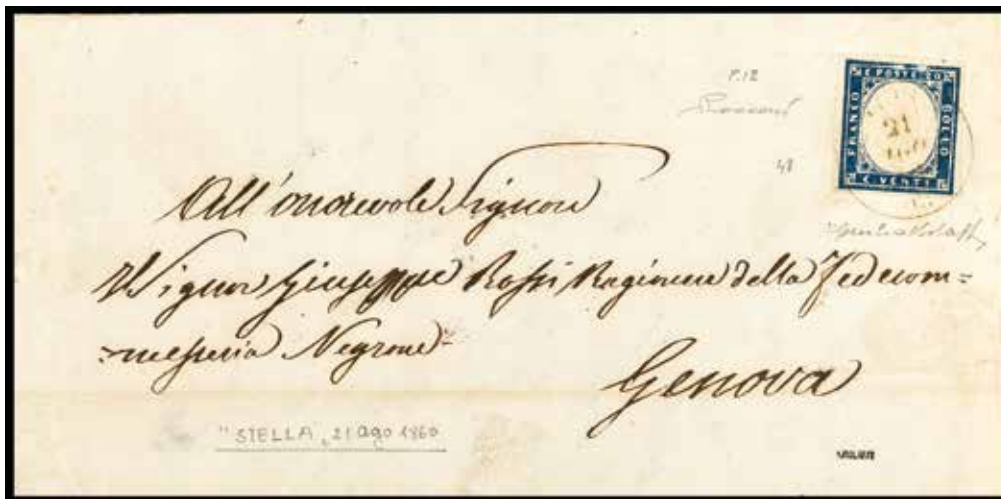 P.12
C. POSTE 20
FRANCO
BOLLO
C. VENTI
21
AGO
48
All'onorevole Signore
Il Signor Giuseppe Rossi Ragioniere della Fedecom=
=messeria Negrone
Genova
"STELLA" 21 ago 1860